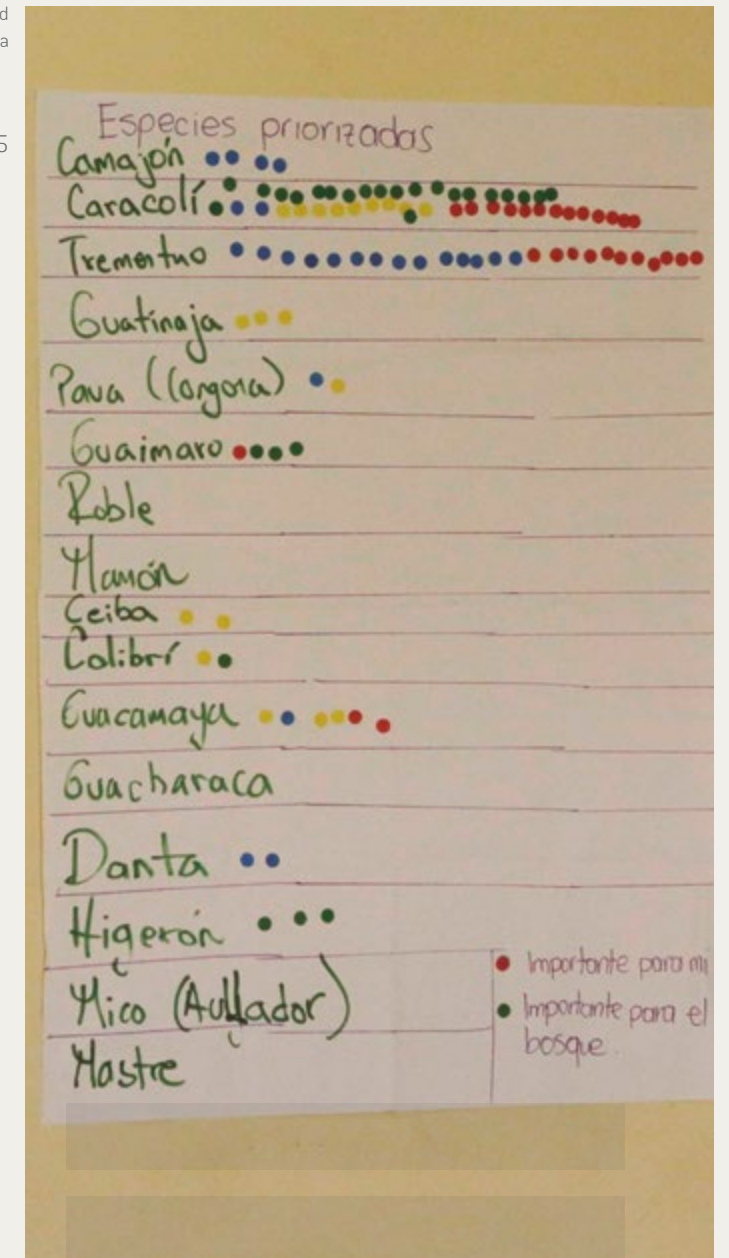 d
a
5
Especies priorizadas
Camajón
Caracolí
Trementno
Guatinaja
Pava (Congona)
Guaimaro
Roble
Mamón
Ceiba
Colibrí
Guacamaya
Guacharaca
Danta
Higerón
Mico (Aullador)
Mastre
Importante para mi
Importante para el
bosque.